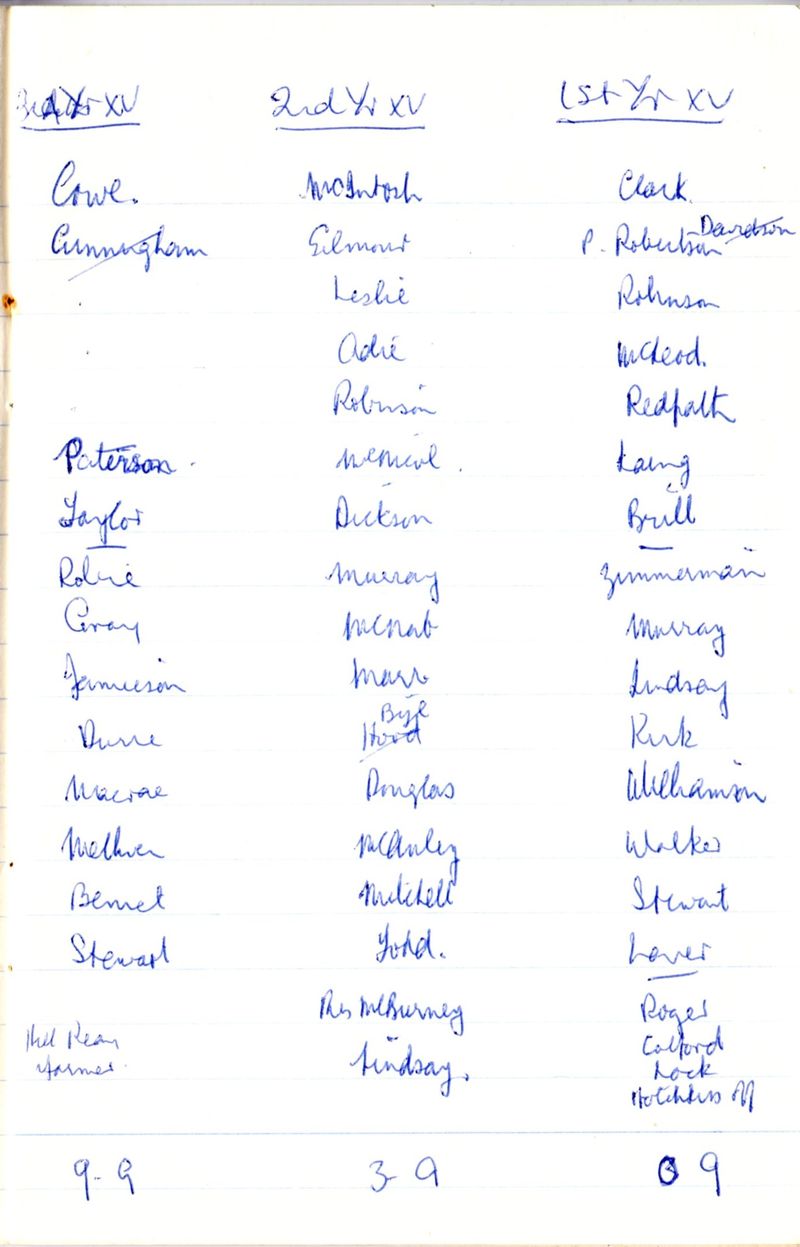 XV
2nd Yr XV
1st Yr XV
Cowe.
McIntosh
Clark.
Cunningham
Gilmour
P. Robertson Davidson
Leslie
Robinson
Adie
McLeod.
Robinson
Redpath
Paterson.
McNicol.
Laing
Taylor
Dickson
Brill
Robie
Murray
Zimmerman
Gray
McNab
Murray
Jamieson
Marr
Lindsay
Hood
Kirk
Macrae
Douglas
Williamson
McAnley
Walker
Bennet
Mitchell
Stewart
Stewart
Res McBurney
Roger
Lindsay.
Lock
Hotchkiss off
9-9
3-9
0 9